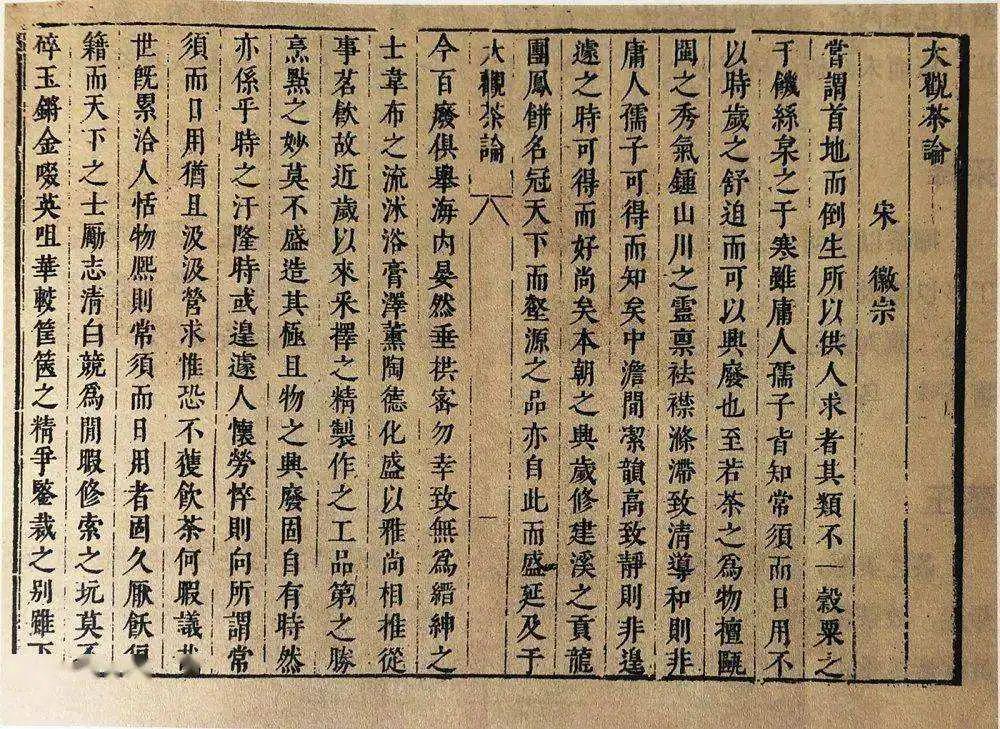 大觀茶論
宋 徽宗
嘗謂首地而倒生所以供人求者其類不一穀粟之
于饑絲枲之于寒雖庸人孺子皆知常須而日用不
以時歲之舒迫而可以興廢也至若茶之為物檀甌
閩之秀氣鍾山川之靈稟袪襟滌滯致清導和則非
庸人孺子可得而知矣中澹閒潔韻高致靜則非遑
遽之時可得而好尚矣本朝之興歲修建溪之貢龍
團鳳餅名冠天下而壑源之品亦自此而盛延及于
大觀茶論 八 一
今百廢俱舉海內晏然垂拱密勿幸致無為縉紳之
士韋布之流沐浴膏澤薰陶德化盛以雅尚相推從
事茗飲故近歲以來采擇之精製作之工品第之勝
烹點之妙莫不盛造其極且物之興廢固自有時然
亦係乎時之汙隆時或遑遽人懷勞悴則向所謂常
須而日用猶且汲汲營求惟恐不獲飲茶何暇議
世既累洽人恬物熙則常須而日用者固久厭飫
籍而天下之士勵志清白競為閒暇修索之玩莫
碎玉鏘金啜英咀華較筐篋之精爭鑒裁之別雖下